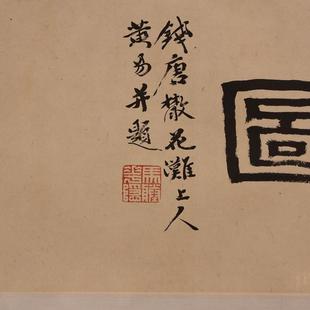 圖
錢唐散花灘上人
黃易并題